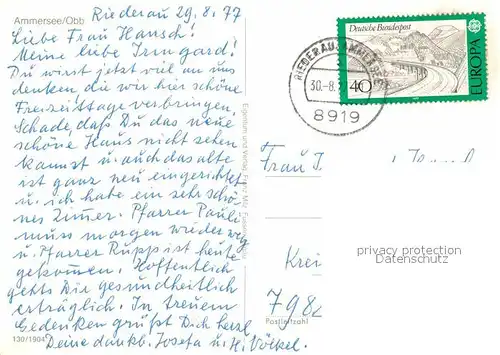 Ammersee/Obb
Riederau 29.8.77
Liebe Frau Hansch!
Meine liebe Irmgard!
Du wirst jetzt viel an uns
denken, die wir hier schöne
Freizeittage verbringen.
Schade, daß Du das neue
schöne Haus nicht sehen
kannst u. auch das alte
ist ganz neu eingerichtet
u. ich habe ein sehr schö-
nes Zimmer. Pfarrer Pauli
muss morgen wieder weg
u. Pfarrer Rupp ist heute
gekommen. Hoffentlich
gehts Dir gesundheitlich
erträglich. In treuem
Gedenken grüßt Dich herzl.
Deine dankb. Josefa u. H. Völkel.
130/1904
Eigentum und Verlag Franz Milz
Deutsche Bundespost
40
EUROPA
RIEDERAU, AMMERSEE
30.-8.77
8919
Frau I
Krei
7982
Postleitzahl
privacy protection
Datenschutz